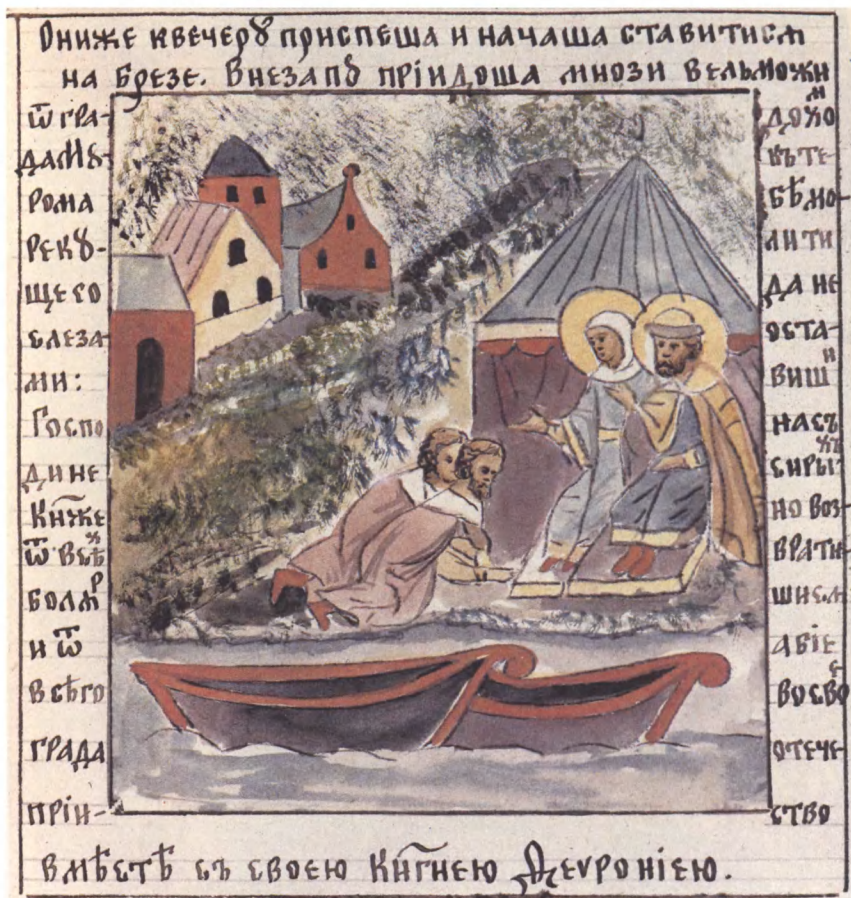 Ониже квечерꙋ приспеша и начаша ставитисѧ
на брезе. Внезапꙋ прїидоша мнози вельможи
ѿ гра-
дамꙋ
рома
рекꙋ-
щесо
слеза
ми:
Госпо
дине
Кн҃же
ѿ всѣⷯ
болѧⷬ
и ѿ
всѣго
града
прїи-
доⷨхо
къте
бѣмо
лити
да не
оста-
вишⷤи
насъ
сирыⷯъ
но воз
врати
шисѧ
абїе
восвоⷷ
отече
ство
вмѣстѣ съ своею Кн҃гнею Ѳеѵронїею.